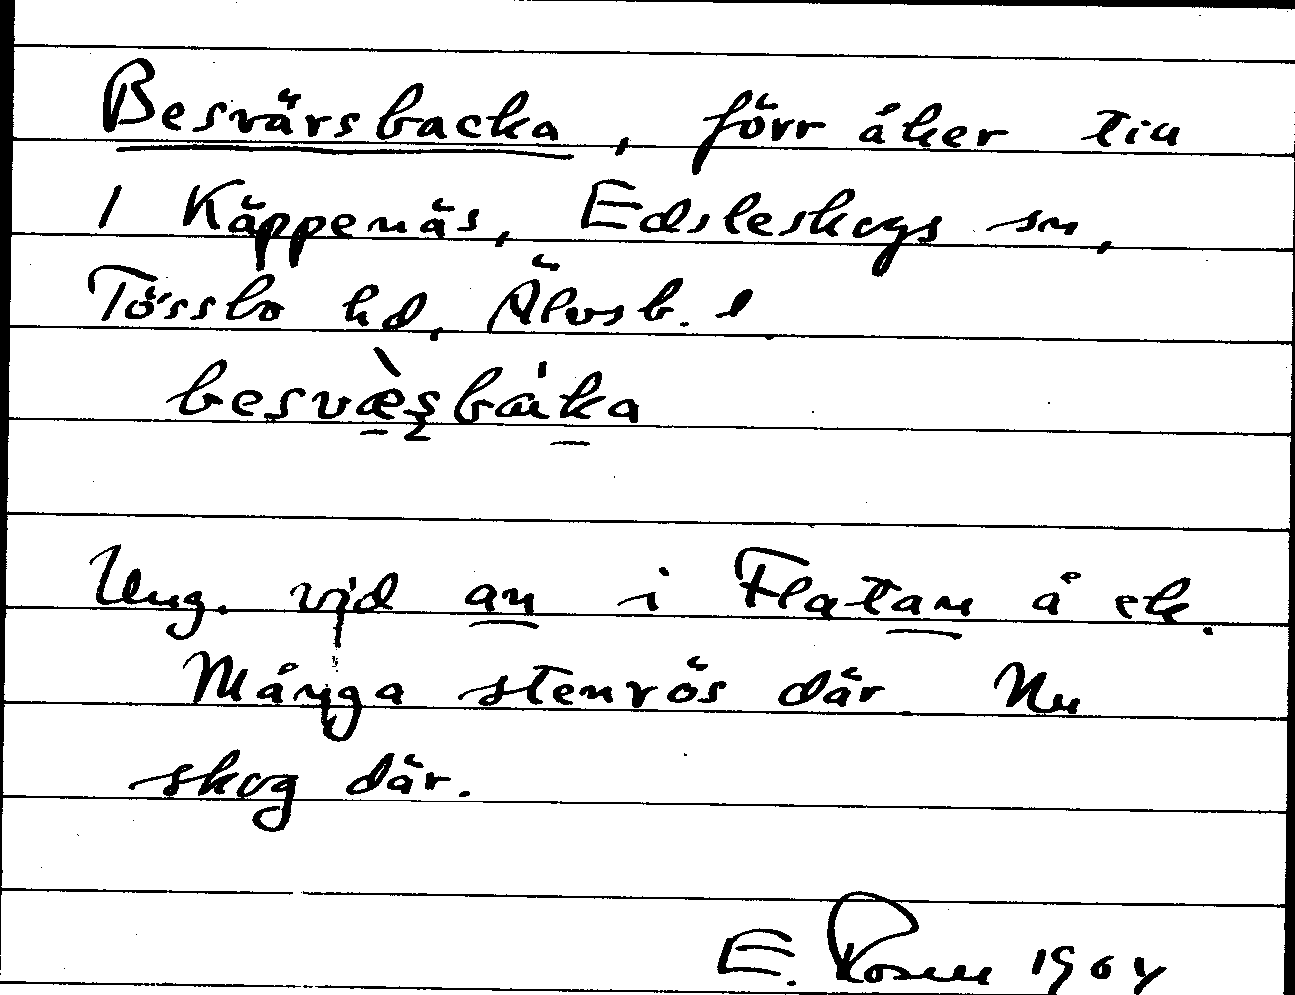 Besvärsbacka, förr åker till
1 Käppenäs, Edsleskogs sn,
Tössbo hd, Älvsb. l.
besvæ̀ʂbáka
Ung. vid an i Flatan å ek.
Många stenrös där. Nu
skog där.
E. Rosell 1964